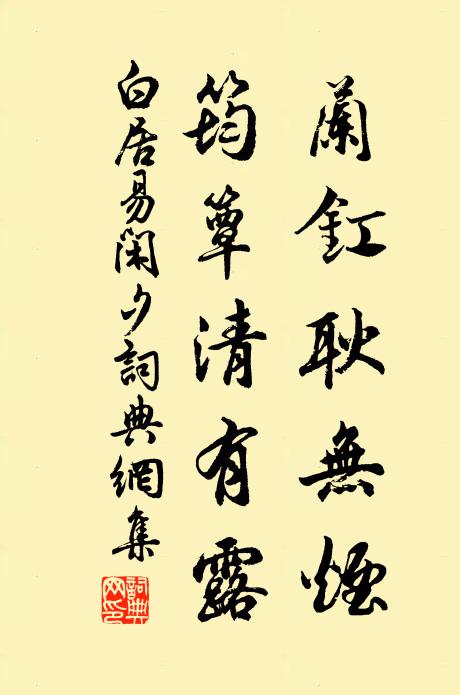 蘭釭耿無煙
筠簟清有露
白居易閑夕詞典網集
詞典網印